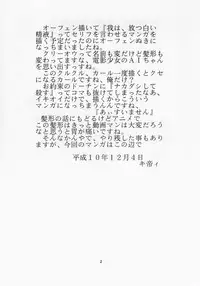 オーフェン描いて『我は、放つ白い
精液』ってセリフを言わせるマンガを
描く予定だったのにオーフェンぬきに
なっちまいましたね。
クリーオウって名前も変だけど髪形も
変ですよね、電影少女のＡＩちゃん
を思い出すっすね。
このクルクル、カール一度描くとクセ
になるカールですね、俺だけ？
お約束のドーチンに『ナカダシして
殺す』ってコマも抜けてしまったなあ、
イキオイだけで、描くからこういう
マンガになっちまうんですね。
『あいすいません』
髪形の話にもどるけどアニメで
この髪形はきっと動画マンは大変だろう
なと思うと胃が痛いですね。
そんなかんやで、やり残した事もあり
ますが、今回のマンガはこの辺で
平成１０年１２月４日
キ帝ィ
3